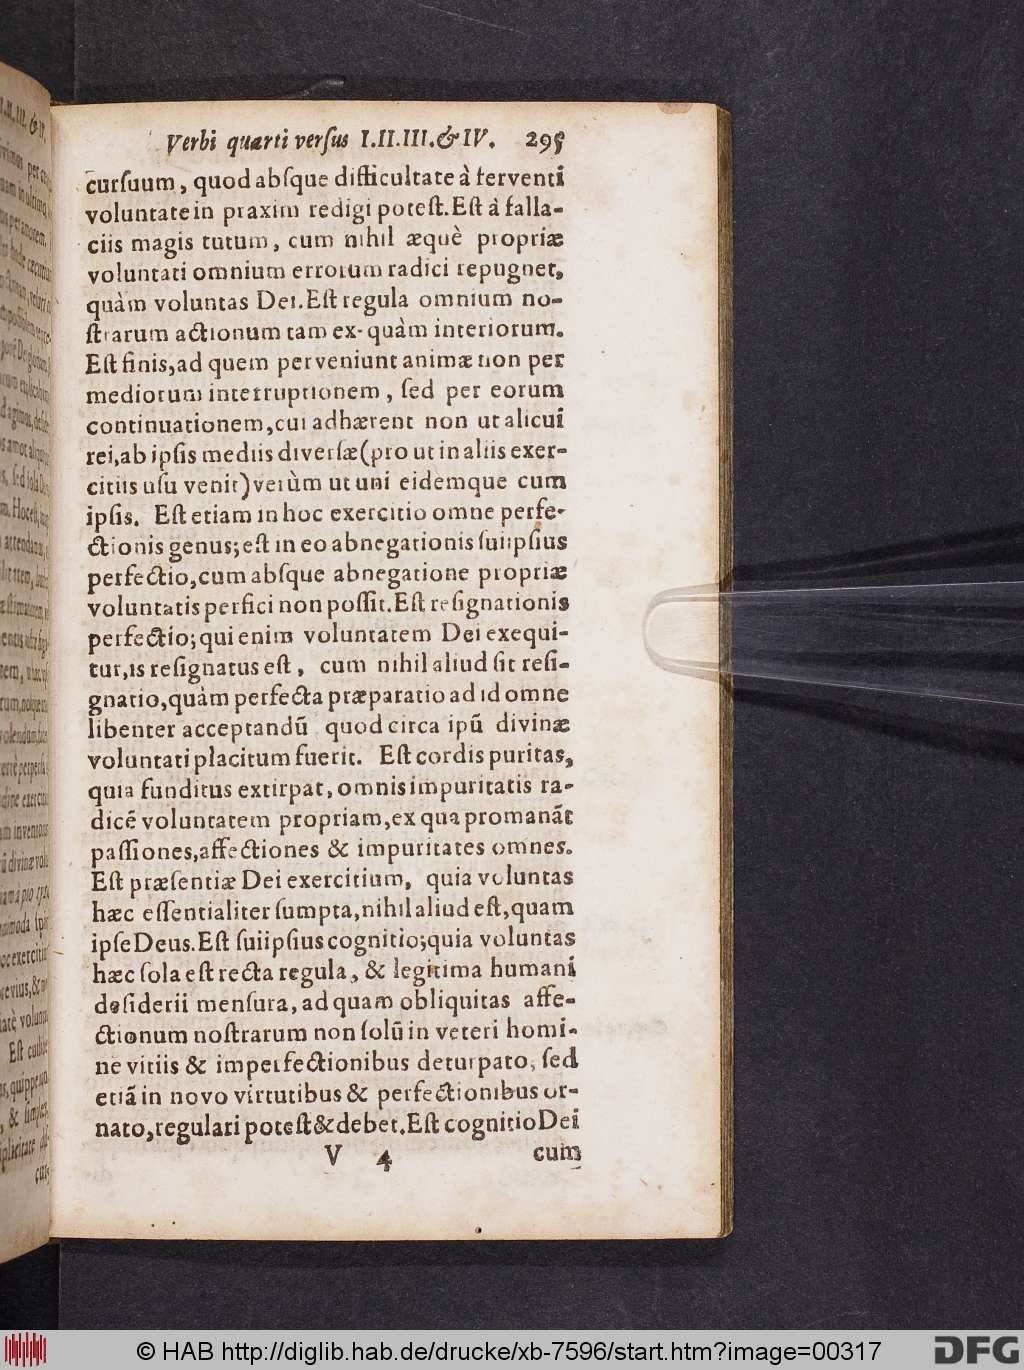 Verbi quarti versus I.II.III.& IV. 295
cursuum, quod absque difficultate à ferventi
voluntate in praxim redigi potest. Est à falla-
ciis magis tutum, cum nihil æquè propriæ
voluntati omnium errorum radici repugnet,
quàm voluntas Dei. Est regula omnium no-
strarum actionum tam ex- quàm interiorum.
Est finis, ad quem perveniunt animæ non per
mediorum interruptionem, sed per eorum
continuationem, cui adhærent non ut alicui
rei, ab ipsis mediis diversæ (pro ut in aliis exer-
citiis usu venit) verùm ut uni eidemque cum
ipsis. Est etiam in hoc exercitio omne perfe-
ctionis genus; est in eo abnegationis suiipsius
perfectio, cum absque abnegatione propriæ
voluntatis perfici non possit. Est resignationis
perfectio; qui enim voluntatem Dei exequi-
tur, is resignatus est, cum nihil aliud sit resi-
gnatio, quàm perfecta præparatio ad id omne
libenter acceptandũ quod circa ipũ divinæ
voluntati placitum fuerit. Est cordis puritas,
quia funditus extirpat, omnis impuritatis ra-
dicẽ voluntatem propriam, ex qua promanãt
passiones, affectiones & impuritates omnes.
Est præsentiæ Dei exercitium, quia voluntas
hæc essentialiter sumpta, nihil aliud est, quam
ipse Deus. Est suiipsius cognitio; quia voluntas
hæc sola est recta regula, & legitima humani
desiderii mensura, ad quam obliquitas affe-
ctionum nostrarum non solũ in veteri homi-
ne vitiis & imperfectionibus deturpato, sed
etiã in novo virtutibus & perfectionibus or-
nato, regulari potest & debet. Est cognitio Dei
V 4 cum
© HAB http://diglib.hab.de/drucke/xb-7596/start.htm?image=00317
DFG